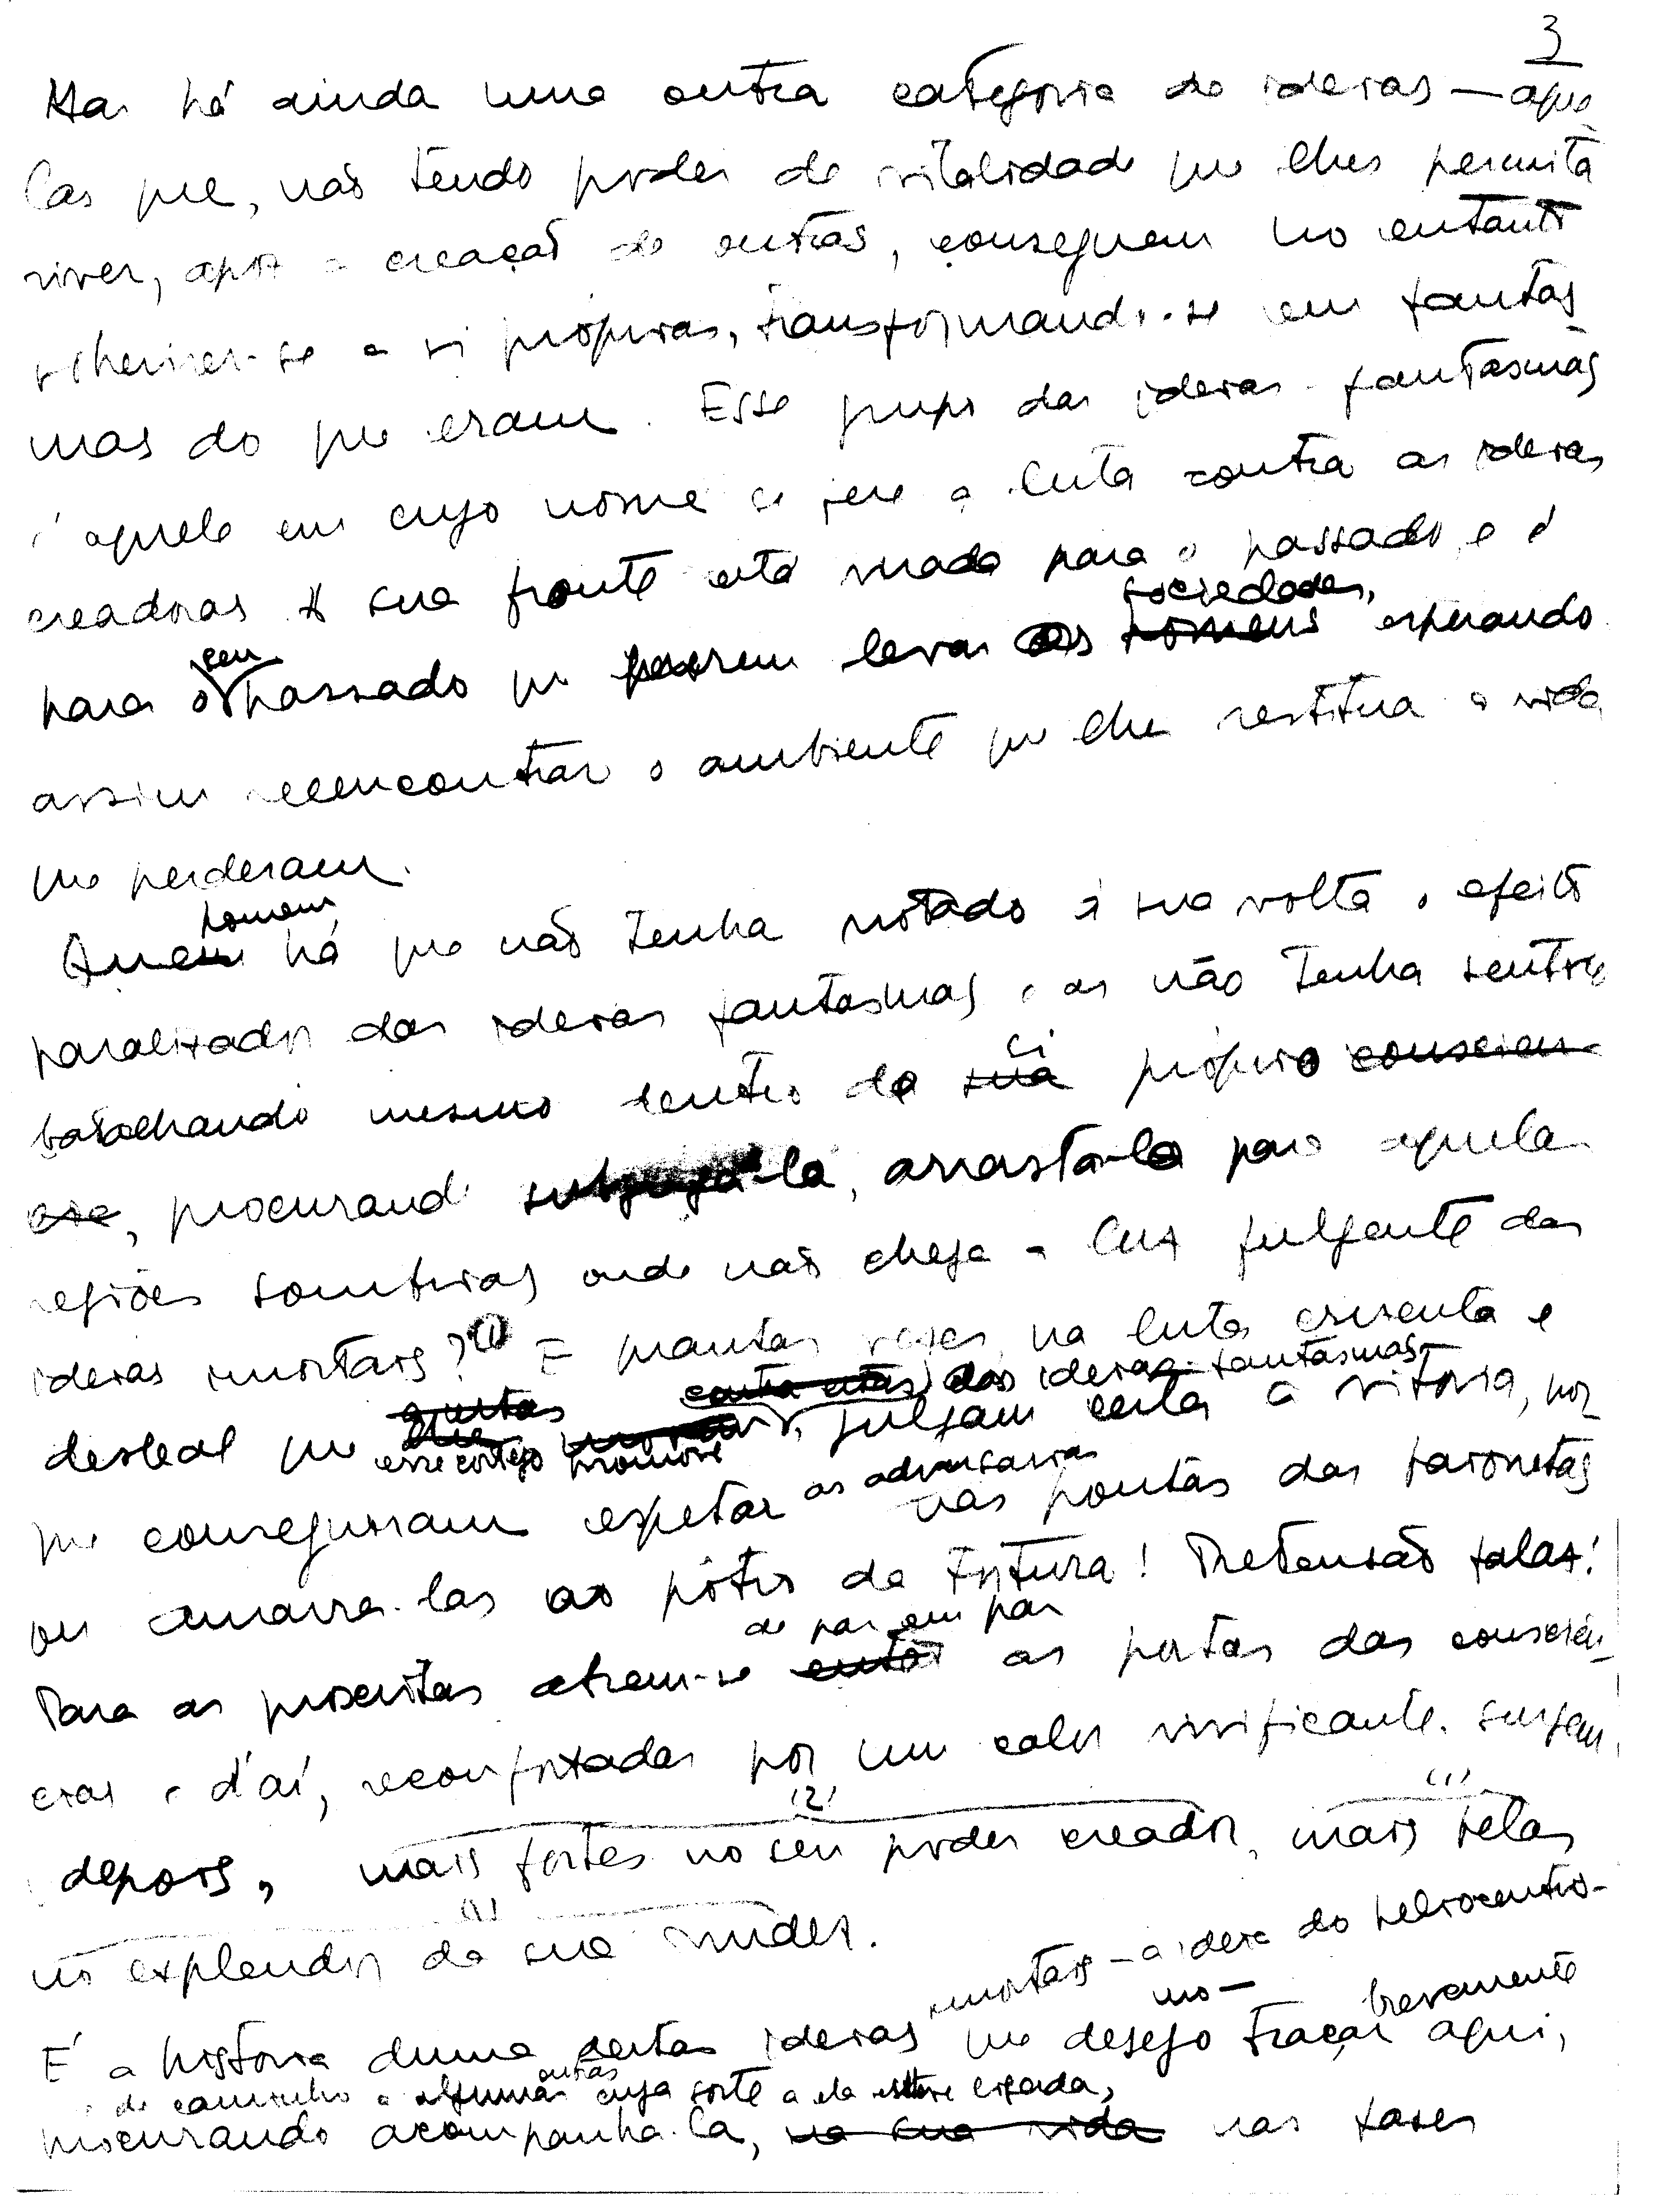 3
Mas há ainda uma outra categoria de ideias — aque-
las que, não tendo poder de vitalidade que lhes permita
viver, após a creação de outras, conseguem no entanto
sobreviver-se a si próprias, transformando-se em fantas-
mas do que eram. Esse grupo das ideias-fantasmas
é aquele em cujo nome se fere a luta contra as ideias
creadoras. A sua fronte está virada para o passado e é
para o seu passado que querem levar as sociedades, esperando
assim reencontrar o ambiente que lhe restitua a vida
que perderam.
Que homem há que não tenha notado à sua volta o efeito
paralizador das ideias fantasmas e as não tenha sentido
batalhando mesmo dentro de si próprio
, procurando subjugá-la, arrastá-la para aquelas
regiões sombrias onde não chega a luz fulgente das
ideias imortais? (1) E quantas vezes, na luta cruenta e
desleal que esse cortejo das ideias-fantasmas promove, julgam certa a vitória, por
que conseguiram espetar as adversárias nas pontas das baionetas
ou amarrá-las ao pôtro da tortura! Pretensão falaz!
Para as proscritas abrem-se de par em par as portas das consciên-
cias e d'aí, reconfortadas por um calor vivificante, surgem,
(2) (1)
depois, mais fortes no seu poder creador, mais belas
(1)
no explendor da sua nudez.
É a história duma destas ideias imortais — a ideia do heliocentris-
mo — que desejo traçar brevemente aqui,
procurando acompanhá-la, e de caminho a algumas outras cuja sorte a ela esteve ligada, nas fases